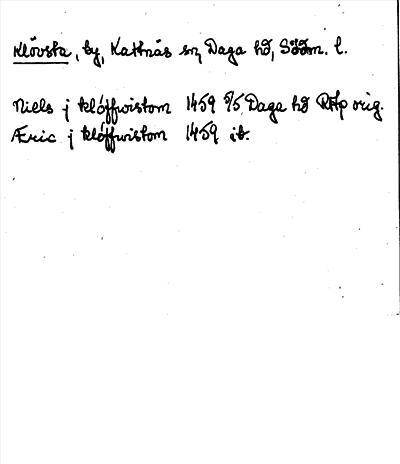 Klövsta, by, Kattnäs sn, Daga hd, Södm. l.
Niels j klöffwistom 1459 8/5 Daga hd RAp orig.
Æric j klöffwistom 1459 ib.